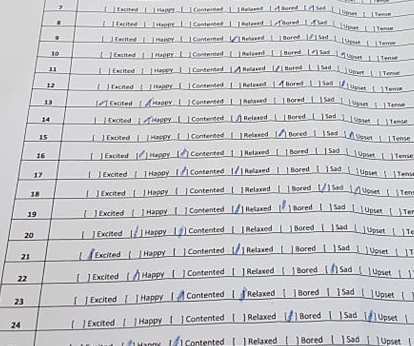 7 [ ] Excited [ ] Happy [ ] Contented [ ] Relaxed [/] Bored [/] Sad [ ] Upset [ ] Tense
8 [ ] Excited [ ] Happy [ ] Contented [ ] Relaxed [/] Bored [/] Sad [ ] Upset [ ] Tense
9 [ ] Excited [ ] Happy [ ] Contented [/] Relaxed [ ] Bored [/] Sad [ ] Upset [ ] Tense
10 [ ] Excited [ ] Happy [ ] Contented [ ] Relaxed [ ] Bored [/] Sad [/] Upset [ ] Tense
11 [ ] Excited [ ] Happy [ ] Contented [/] Relaxed [/] Bored [ ] Sad [ ] Upset [ ] Tense
12 [ ] Excited [ ] Happy [ ] Contented [ ] Relaxed [/] Bored [ ] Sad [/] Upset [ ] Tense
13 [/] Excited [/] Happy [ ] Contented [ ] Relaxed [ ] Bored [ ] Sad [ ] Upset [ ] Tense
14 [ ] Excited [/] Happy [ ] Contented [/] Relaxed [ ] Bored [ ] Sad [ ] Upset [ ] Tense
15 [ ] Excited [ ] Happy [ ] Contented [ ] Relaxed [/] Bored [ ] Sad [/] Upset [ ] Tense
16 [ ] Excited [/] Happy [/] Contented [ ] Relaxed [ ] Bored [ ] Sad [ ] Upset [ ] Tense
17 [ ] Excited [ ] Happy [/] Contented [/] Relaxed [ ] Bored [ ] Sad [ ] Upset [ ] Tens
18 [ ] Excited [ ] Happy [ ] Contented [ ] Relaxed [ ] Bored [/] Sad [/] Upset [ ] Tens
19 [ ] Excited [ ] Happy [ ] Contented [/] Relaxed [/] Bored [ ] Sad [ ] Upset [ ] Ten
20 [ ] Excited [/] Happy [/] Contented [ ] Relaxed [ ] Bored [ ] Sad [ ] Upset [ ] Te
21 [/] Excited [ ] Happy [ ] Contented [/] Relaxed [ ] Bored [ ] Sad [ ] Upset [ ] Te
22 [ ] Excited [/] Happy [ ] Contented [ ] Relaxed [ ] Bored [/] Sad [ ] Upset [ ] T
23 [ ] Excited [ ] Happy [/] Contented [/] Relaxed [ ] Bored [ ] Sad [ ] Upset [ ]
24 [ ] Excited [ ] Happy [ ] Contented [ ] Relaxed [/] Bored [ ] Sad [/] Upset [
[ ] Excited [/] Happy [/] Contented [ ] Relaxed [ ] Bored [ ] Sad [ ] Upset